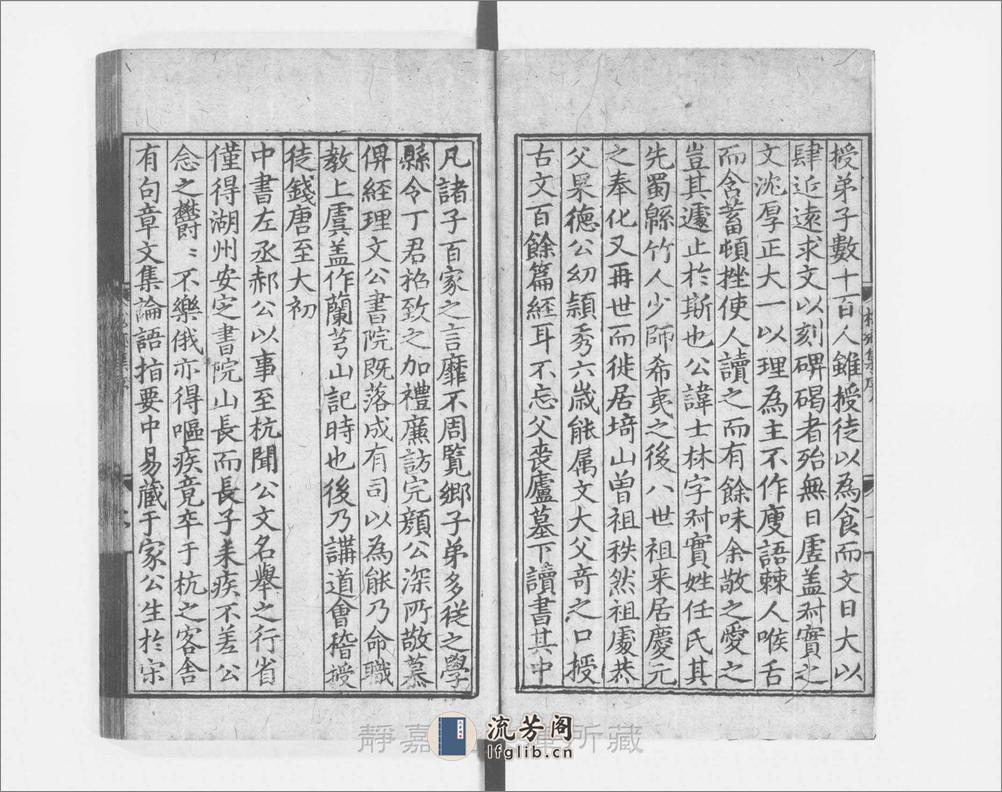 授弟子數十百人雖授徒以為食而文日大以
肆近遠求文以刻碑碣者殆無日虛盖尗實之
文沈厚正大一以理為主不作廋語棘人喉舌
而含蓄頓挫使人讀之而有餘味余敬之愛之
豈其遽止於斯也公諱士林字尗實姓任氏其
先蜀緜竹人少師希夷之後八世祖来居慶元
之奉化又再世而徙居埼山曽祖秩然祖處恭
父杲德公幼頴秀六嵗能属文大父竒之口授
古文百餘篇経耳不忘父丧廬墓下讀書其中
凡諸子百家之言靡不周覧鄉子弟多從之學
縣令丁君招致之加禮廉訪完顔公深所敬慕
俾経理文公書院既落成有司以為能乃命職
教上虞盖作蘭芎山記時也後乃講道會稽授
徒錢唐至大初
中書左丞郝公以事至杭聞公文名舉之行省
僅得湖州安定書院山長而長子耒疾不差公
念之欝〻不樂俄亦得嘔疾竟卒于杭之客舎
有句章文集論語指要中易藏于家公生於宋
靜嘉
所藏
流芳阁
lfglib.cn